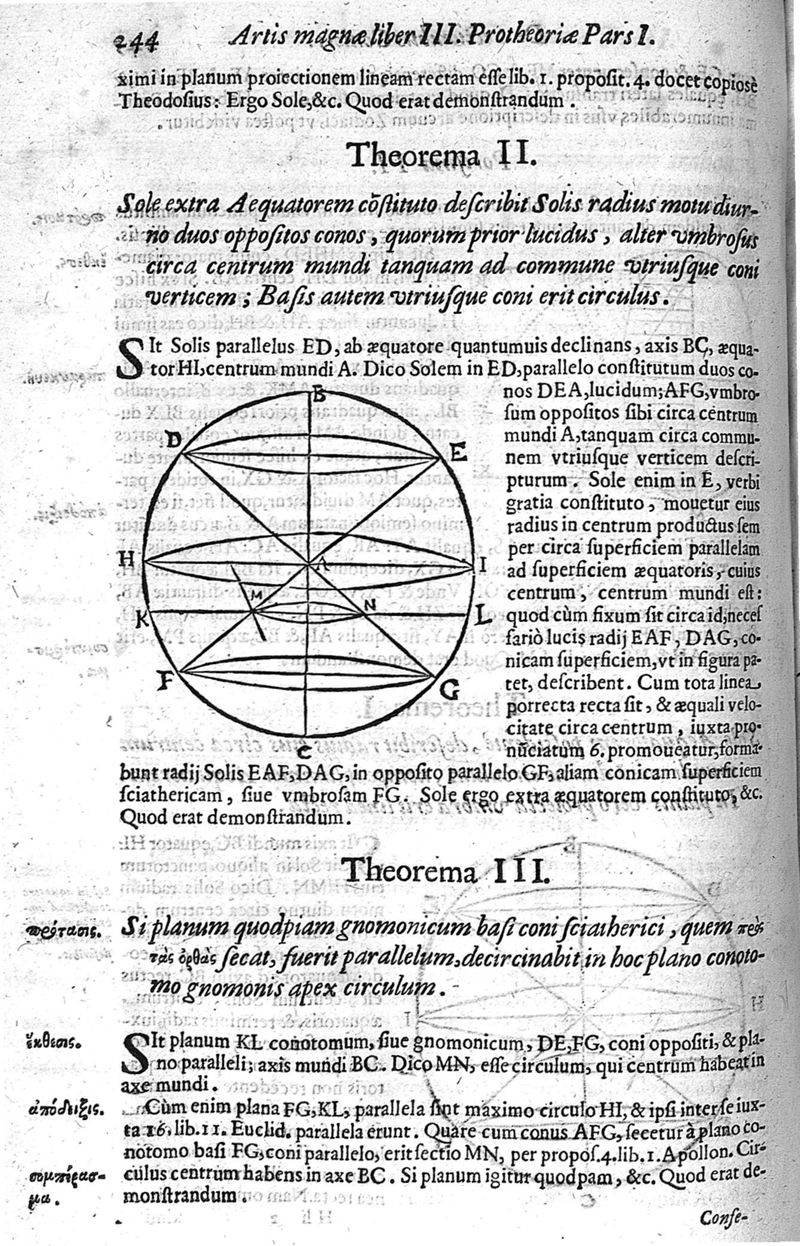 244 Artis magnæ liber III. Protheoriæ Pars I.
ximi in planum proiectionem lineam rectam eſſe lib. 1. propoſit. 4. docet copiosè
Theodoſius: Ergo Sole, &c. Quod erat demonſtrandum.
Theorema II.
Sole extra Aequatorem cõſtituto deſcribit Solis radius motu diur-
no duos oppoſitos conos, quorum prior lucidus, alter vmbroſus
circa centrum mundi tanquam ad commune vtriuſque coni
verticem; Baſis autem vtriuſque coni erit circulus.
SIt Solis parallelus ED, ab æquatore quantumuis declinans, axis BC, æqua-
tor HI, centrum mundi A. Dico Solem in ED, parallelo conſtitutum duos co-
nos DEA, lucidum; AFG, vmbro-
ſum oppoſitos ſibi circa centrum
mundi A, tanquam circa commu-
nem vtriuſque verticem deſcri-
pturum. Sole enim in E, verbi
gratia conſtituto, mouetur eius
radius in centrum productus ſem
per circa ſuperficiem parallelam
ad ſuperficiem æquatoris, cuius
centrum, centrum mundi eſt:
quod cùm fixum ſit circa id, neceſ
ſariò lucis radij EAF, DAG, co-
nicam ſuperficiem, vt in figura pa-
tet, deſcribent. Cum tota linea
porrecta recta ſit, & æquali velo-
citate circa centrum, iuxta pro-
nuciatum 6. promoueatur, forma-
bunt radij Solis EAF, DAG, in oppoſito parallelo GF, aliam conicam ſuperficiem
ſciathericam, ſiue vmbroſam FG. Sole ergo extra æquatorem conſtituto, &c.
Quod erat demonſtrandum.
B
D
E
H
A
I
M
N
K
L
F
G
C
Theorema III.
πρότασις. Si planum quodpiam gnomonicum baſi coni ſciatherici, quem πρὸς
τὰς ὀρθὰς ſecat, fuerit parallelum, decircinabit in hoc plano conoto-
mo gnomonis apex circulum.
ἔκθεσις. SIt planum KL conotomum, ſiue gnomonicum, DE, FG, coni oppoſiti, & pla-
no paralleli; axis mundi BC. Dico MN, eſſe circulum, qui centrum habeat in
axe mundi.
ἀπόδειξις. Cùm enim plana FG, KL, parallela ſint maximo circulo HI, & ipſi inter ſe iux-
ta 16. lib. 11. Euclid. parallela erunt. Quare cum conus AFG, ſecetur à plano co-
notomo baſi FG, coni parallelo, erit ſectio MN, per propoſ. 4. lib. 1. Apollon. Cir-
συμπέρασ- culus centrum habens in axe BC. Si planum igitur quodpam, &c. Quod erat de-
μα. monſtrandum.
Conſe-